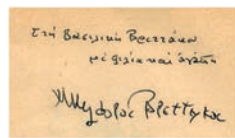 Στη Βασιλική Βρεττάκου
με φιλία και αγάπη
Νικηφόρος Βρεττάκος